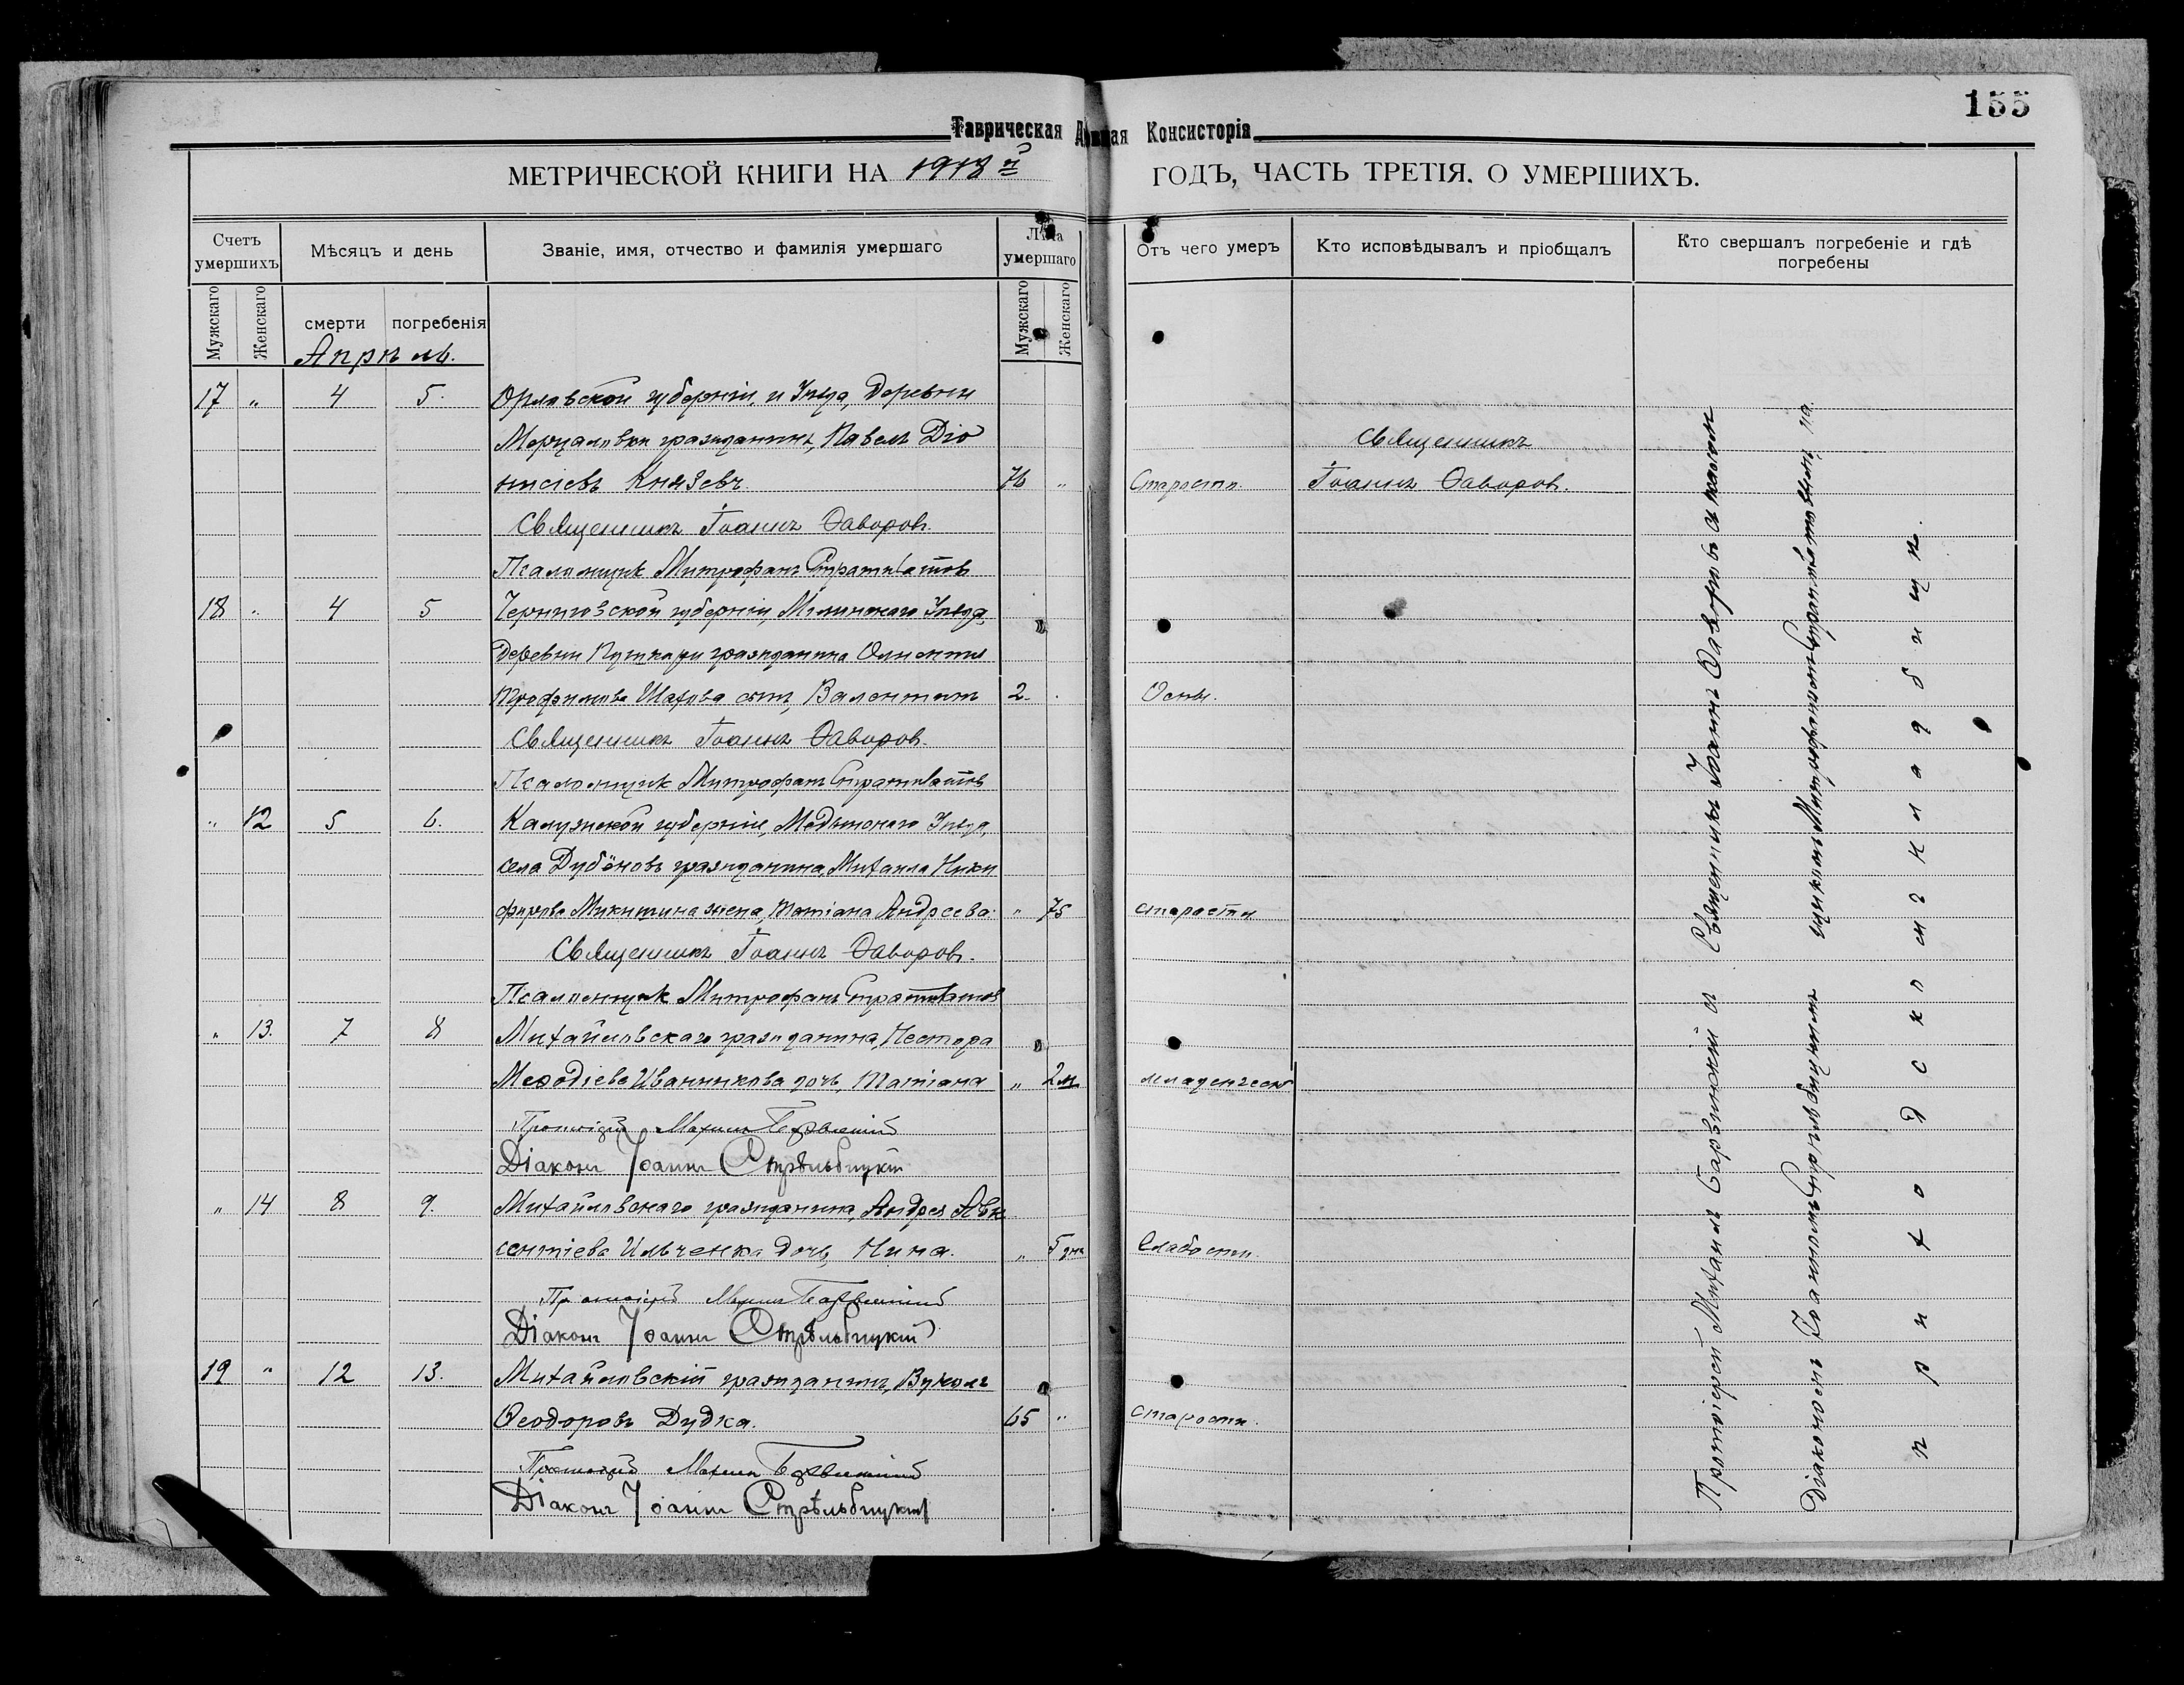 155
Таврическая Духовная Консисторія
МЕТРИЧЕСКОЙ КНИГИ НА 1918 й ГОДЪ, ЧАСТЬ ТРЕТІЯ. О УМЕРШИХЪ.
Счетъ умершихъ
Мѣсяцъ и день
Званіе, имя, отчество и фамилія умершаго
Лѣта умершаго
Отъ чего умеръ
Кто исповѣдывалъ и пріобщалъ
Кто свершалъ погребеніе и гдѣ погребены
Мужскаго
Женскаго
смерти
погребенія
Мужскаго
Женскаго
Апрѣль.
17 " 4 5. Орловской губерніи, и Уѣзда, Деревни
Мерцаловки гражданинъ, Павелъ Діо
Священникъ
нисіевъ Князевъ. 76 " Старости. Іоаннъ Ѳаворовъ.
Священникъ Іоаннъ Ѳаворовъ.
Псаломщикъ Митрофанъ Стратилатовъ
18 " 4 5 Черниговской губерніи, Мглинскаго Уѣзда,
Деревни Пушкари гражданина
Трофимова Шахова сынъ, Валентинъ 2. Оспы.
Священникъ Іоаннъ Ѳаворовъ.
Псаломщикъ Митрофанъ Стратилатовъ
" 12 5 6. Калужской губерніи, Медынскаго Уѣзда,
села Дубёновъ гражданина, Михаила Ники
форова Микитина жена, Татіана Андреева. " 75 старости
Священникъ Іоаннъ Ѳаворовъ.
Псаломщикъ Митрофанъ Стратилатовъ
" 13. 7 8 Михайловскаго гражданина, Нестора
Меѳодіева Иванникова дочь, Татіана " 2 м младенческ
Протоіерей Михаилъ Барзинскій
Діаконъ Іоаннъ Стрѣльбицкій
" 14 8 9. Михайловскаго гражданина, Андрея Авк
сентіева Ильченка дочь, Нина. " 5 дн Слабости.
Протоіерей Михаилъ
Діаконъ Іоаннъ Стрѣльбицкій
19 " 12 13. Михайловскій гражданинъ, Вуколъ
Ѳеодоровъ Дудка. 65 " старости.
Протоіерей Михаилъ
Діаконъ Іоаннъ Стрѣльбицкій
Протоіерей Михаилъ Барзинскій и Священникъ Іоаннъ Ѳаворовъ съ псалом
Діакономъ Іоанномъ Стрѣльбицкимъ щикомъ Митрофаномъ Стратилатовымъ, на
приходскомъ кладбищѣ.